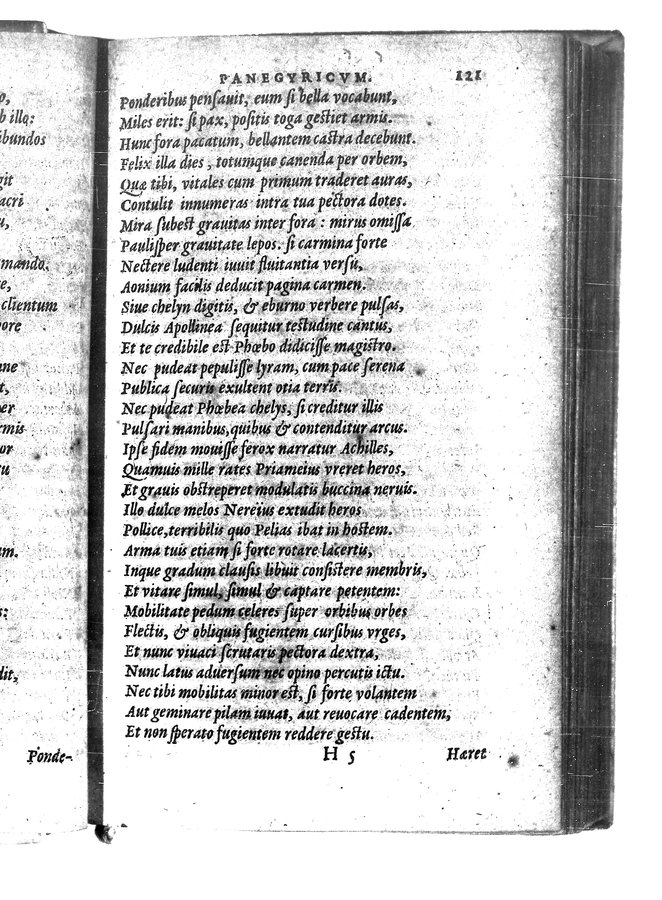 o,
b illo:
ibundos
git
acri
u,
mando.
re,
clientum
ore
t,
er
rmis
or
tu
um.
s:
dit,
Ponde-
PANEGYRICVM. 121
Ponderibus pensauit, eum si bella vocabunt,
Miles erit: si pax, positis toga gestiet armis.
Hunc fora pacatum, bellantem castra decebunt.
Felix illa dies, totumque canenda per orbem,
Quæ tibi, vitales cum primum traderet auras,
Contulit innumeras intra tua pectora dotes.
Mira subest grauitas inter fora: mirus omissa
Paulisper grauitate lepos. si carmina forte
Nectere ludenti iuuit fluitantia versu,
Aonium facilis deducit pagina carmen.
Siue chelyn digitis, & eburno verbere pulsas,
Dulcis Apollinea sequitur testudine cantus,
Et te credibile est Phœbo didicisse magistro.
Nec pudeat pepulisse lyram, cum pace serena
Publica securis exultent otia terris.
Nec pudeat Phœbea chelys, si creditur illis
Pulsari manibus, quibus & contenditur arcus.
Ipse fidem mouisse ferox narratur Achilles,
Quamuis mille rates Priameius vreret heros,
Et grauis obstreperet modulatis buccina neruis.
Illo dulce melos Nereius extudit heros
Pollice, terribilis quo Pelias ibat in hostem.
Arma tuis etiam si forte rotare lacertis,
Inque gradum clausis libuit consistere membris,
Et vitare simul, simul & captare petentem:
Mobilitate pedum celeres super orbibus orbes
Flectis, & obliquis fugientem cursibus vrges,
Et nunc viuaci scrutaris pectora dextra,
Nunc latus aduersum nec opino percutis ictu.
Nec tibi mobilitas minor est, si forte volantem
Aut geminare pilam iuuat, aut reuocare cadentem,
Et non sperato fugientem reddere gestu.
H 5 Hæret